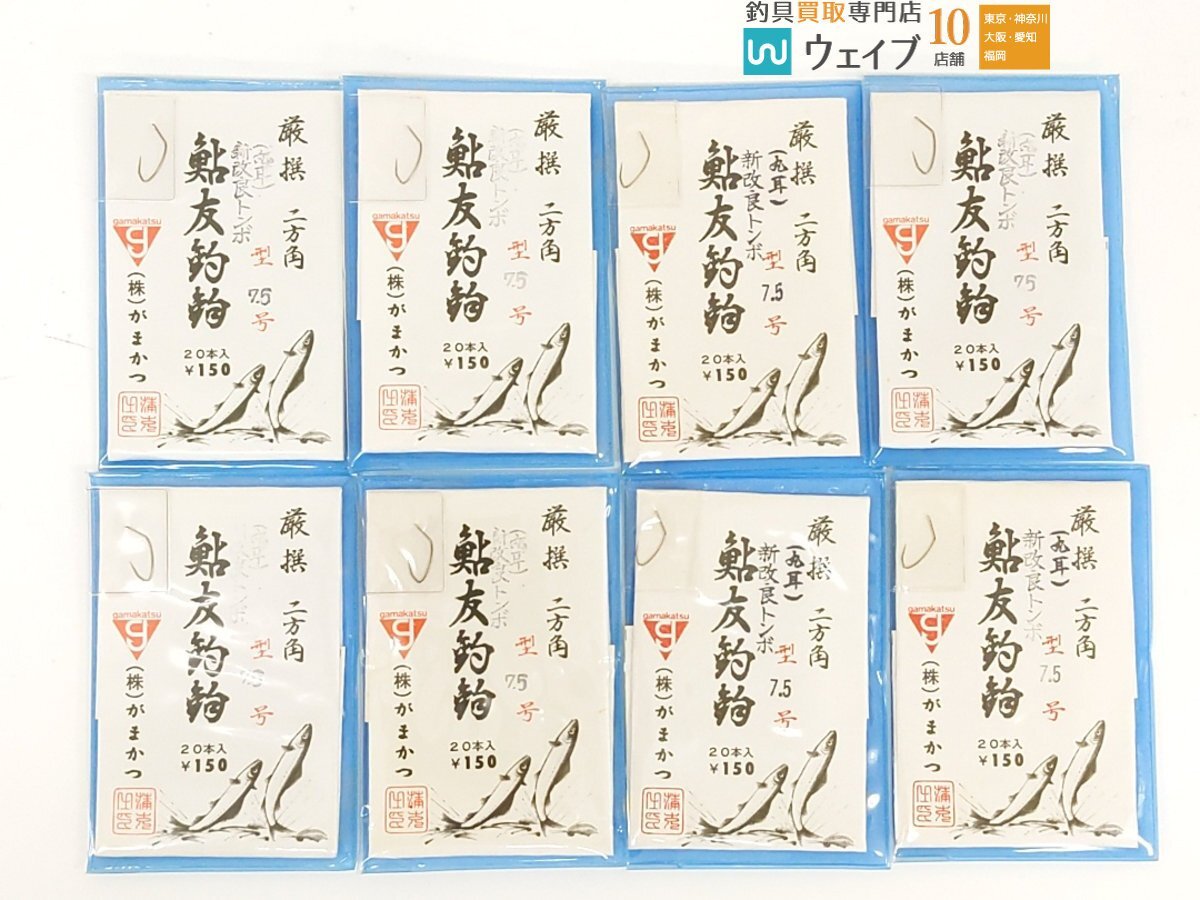 釣具買取専門店
ウェイブ
10
店舗
東京・神奈川
大阪・愛知
福岡
厳撰 二方角
(丸耳)
新改良トンボ
型
7.5
号
鮎友釣鈎
20本入
¥150
gamakatsu
g
(株)がまかつ
厳撰 二方角
(丸耳)
新改良トンボ
型
7.5
号
鮎友釣鈎
20本入
¥150
gamakatsu
g
(株)がまかつ
厳撰 二方角
(丸耳)
新改良トンボ
型
7.5
号
鮎友釣鈎
20本入
¥150
gamakatsu
g
(株)がまかつ
厳撰 二方角
(丸耳)
新改良トンボ
型
7.5
号
鮎友釣鈎
20本入
¥150
gamakatsu
g
(株)がまかつ
厳撰 二方角
型
7.5
号
鮎友釣鈎
20本入
¥150
gamakatsu
g
(株)がまかつ
厳撰 二方角
(丸耳)
新改良トンボ
型
7.5
号
鮎友釣鈎
20本入
¥150
gamakatsu
g
(株)がまかつ
厳撰 二方角
(丸耳)
新改良トンボ
型
7.5
号
鮎友釣鈎
20本入
¥150
gamakatsu
g
(株)がまかつ
厳撰 二方角
(丸耳)
新改良トンボ
型
7.5
号
鮎友釣鈎
20本入
¥150
gamakatsu
g
(株)がまかつ